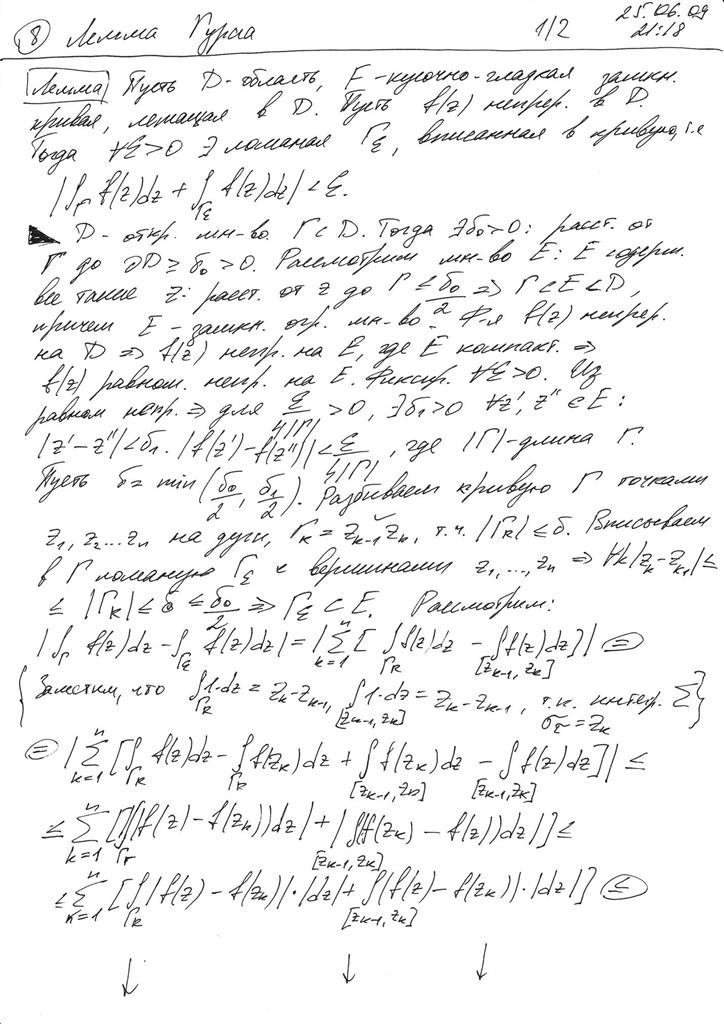 ⑧ Лемма Гурса 1/2 25.06.09
21:18
Лемма Пусть D-область, Г-кусочно-гладкая замкн.
кривая, лежащая в D. Пусть f(z) непрер. в D.
Тогда ∀ε>0 ∃ ломаная Г_ε, вписанная в кривую, т.е
|∫_Г f(z)dz + ∫_{Г_ε} f(z)dz| < ε.
D - откр. мн-во. Г⊂D. Тогда ∃δ₀>0: расст. от
Г до ∂D ≥ δ₀ > 0. Рассмотрим мн-во E: E содерж.
все такие z: расст. от z до Г ≤ δ₀/2 ⇒ Г⊂E⊂D,
причем E - замкн. огр. мн-во. Ф-я f(z) непрер.
на D ⇒ f(z) непр. на E, где E компакт. ⇒
f(z) равном. непр. на E. Фиксир. ∀ε>0. Из
равном непр. ⇒ для ε/4|Г| > 0, ∃δ₁>0 ∀z', z'' ∈ E:
|z'-z''|<δ₁. |f(z')-f(z'')|< ε/4|Г|, где |Г|-длина Г.
Пусть δ = min(δ₀/2, δ₁/2). Разбиваем кривую Г точками
z₁, z₂...zₙ на дуги, Г_k = z_{k-1}z_k, т.ч. |Г_k| ≤ δ. Вписываем
в Г ломаную Г_ε с вершинами z₁,...,zₙ ⇒ ∀k |z_k-z_{k-1}| ≤
≤ |Г_k| ≤ δ ≤ δ₀/2 ⇒ Г_ε ⊂ E. Рассмотрим:
|∫_Г f(z)dz - ∫_{Г_ε} f(z)dz| = |∑_{k=1}^n [∫_{Г_k} f(z)dz - ∫_{[z_{k-1}, z_k]} f(z)dz]| ⊜
{Заметим, что ∫_{Г_k} 1·dz = z_k-z_{k-1}, ∫_{[z_{k-1}, z_k]} 1·dz = z_k-z_{k-1}, т.к. интегр. ∑ σ_τ=z_k}
⊜ |∑_{k=1}^n [∫_{Г_k} f(z)dz - ∫_{Г_k} f(z_k)dz + ∫_{[z_{k-1}, z_k]} f(z_k)dz - ∫_{[z_{k-1}, z_k]} f(z)dz]| ≤
≤ ∑_{k=1}^n [|∫_{Г_k} (f(z) - f(z_k))dz| + |∫_{[z_{k-1}, z_k]} (f(z_k) - f(z))dz|] ≤
≤ ∑_{k=1}^n [∫_{Г_k} |f(z) - f(z_k)|·|dz| + ∫_{[z_{k-1}, z_k]} |f(z) - f(z_k)|·|dz|] ≤